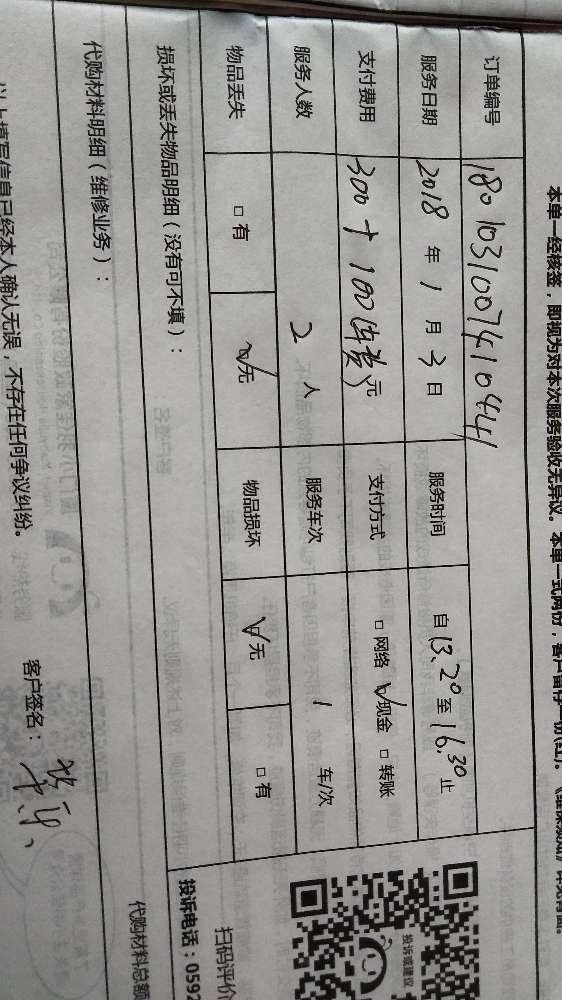 本单一经核签，即视为对本次服务验收无异议。本单一式两份，客户留存一份(红)。
订单编号 180103100741044
服务日期 2018 年 1 月 3 日 服务时间 自 13.20 至 16.30 止
支付费用 300+100(车费) 元 支付方式 □网络 ☑现金 □转账
服务人数 2 人 服务车次 1 车/次
物品丢失 □有 ☑无 物品损坏 ☑无 □有
损坏或丢失物品明细（没有可不填）：
代购材料明细（维修业务）：
代购材料总额
以上填写信息已经本人确认无误，不存在任何争议纠纷。
客户签名：
投诉或建议
扫码评价
投诉电话：0592